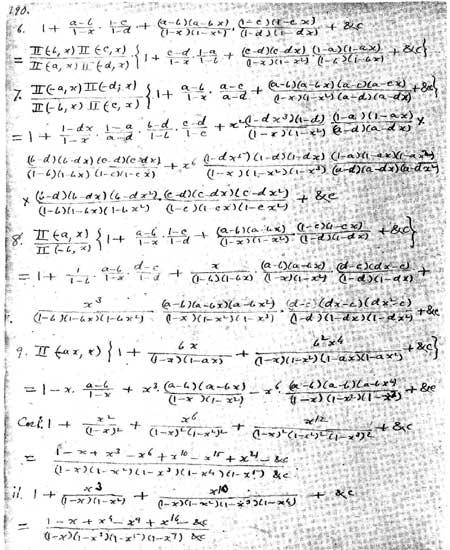 190.
6. 1 + (a-b)/(1-x) · (1-c)/(1-d) + (a-b)(a-bx)/(1-x)(1-x²) · (1-c)(1-cx)/(1-d)(1-dx) + &c
= Π(-b,x) Π(-c,x)/Π(-a,x) Π(-d,x) {1 + (c-d)/(1-x) · (1-a)/(1-b) + (c-d)(c-dx)/(1-x)(1-x²) · (1-a)(1-ax)/(1-b)(1-bx) + &c}
7. Π(-a,x) Π(-d,x)/Π(-b,x) Π(-c,x) {1 + (a-b)/(1-x) · (a-c)/(a-d) + (a-b)(a-bx)(a-c)(a-cx)/(1-x)(1-x²)(a-d)(a-dx) + &c}
= 1 + (1-dx)/(1-x) · (1-a)/(a-d) · (b-d)/(1-b) · (c-d)/(1-c) + x² (1-dx³)(1-d)/(1-x)(1-x²) · (1-a)(1-ax)/(a-d)(a-dx) ×
(b-d)(b-dx)(c-d)(c-dx)/(1-b)(1-bx)(1-c)(1-cx) + x⁶ (1-dx⁵)(1-d)(1-dx)/(1-x)(1-x²)(1-x³) · (1-a)(1-ax)(1-ax²)/(a-d)(a-dx)(a-dx²)
× (b-d)(b-dx)(b-dx²)/(1-b)(1-bx)(1-bx²) · (c-d)(c-dx)(c-dx²)/(1-c)(1-cx)(1-cx²) + &c
8. Π(-a,x)/Π(-b,x) {1 + (a-b)/(1-x) · (1-c)/(1-d) + (a-b)(a-bx)/(1-x)(1-x²) · (1-c)(1-cx)/(1-d)(1-dx) + &c}
= 1 + 1/(1-b) · (a-b)/(1-x) · (d-c)/(1-d) + x/(1-b)(1-bx) · (a-b)(a-bx)/(1-x)(1-x²) · (d-c)(dx-c)/(1-d)(1-dx) +
x³/(1-b)(1-bx)(1-bx²) · (a-b)(a-bx)(a-bx²)/(1-x)(1-x²)(1-x³) · (d-c)(dx-c)(dx²-c)/(1-d)(1-dx)(1-dx²) + &c
9. Π(-ax, x) {1 + bx/(1-x)(1-ax) + b²x⁴/(1-x)(1-x²)(1-ax)(1-ax²) + &c}
= 1 - x · (a-b)/(1-x) + x³ · (a-b)(a-bx)/(1-x)(1-x²) - x⁶ · (a-b)(a-bx)(a-bx²)/(1-x)(1-x²)(1-x³) + &c
Cor i. 1 + x²/(1-x)² + x⁶/(1-x)²(1-x²)² + x¹²/(1-x)²(1-x²)²(1-x³)² + &c
= (1 - x + x³ - x⁶ + x¹⁰ - x¹⁵ + x²¹ - &c)/(1-x)(1-x²)(1-x³)(1-x⁴)(1-x⁵) &c
ii. 1 + x³/(1-x)(1-x²) + x¹⁰/(1-x)(1-x²)(1-x³)(1-x⁴) + &c
= (1 - x + x⁴ - x⁹ + x¹⁶ - &c)/(1-x)(1-x³)(1-x⁵)(1-x⁷) &c